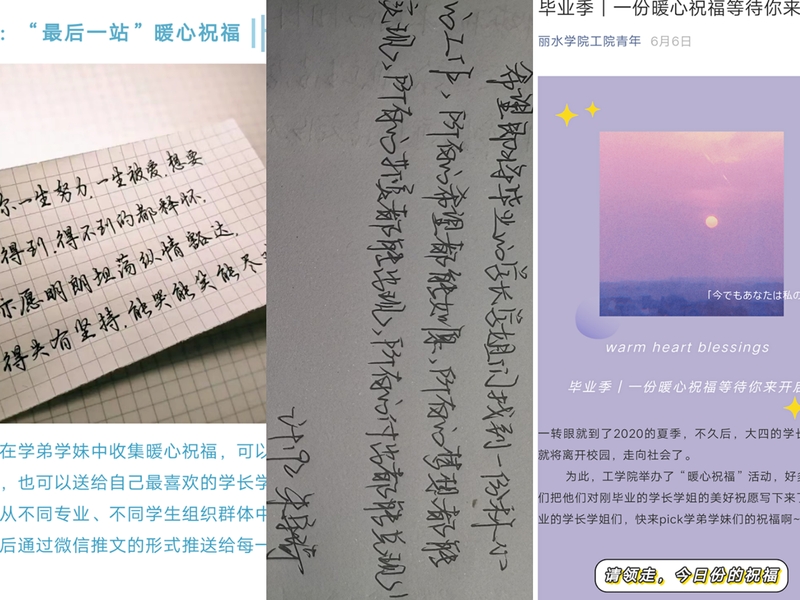 ：“最后一站”暖心祝福
你一生努力，一生被爱，想要
得到，得不到的都释怀.
愿明朗坦荡纵情豁达.
得失有坚持，能哭能笑能尽
在学弟学妹中收集暖心祝福，可以
，也可以送给自己最喜欢的学长学
从不同专业、不同学生组织群体中
后通过微信推文的形式推送给每一
希望即将毕业的学长学姐们找到一份称心
的工作、所有的希望都能如愿、所有的梦想都能
实现、所有的等候都能出现、所有的付出都能兑现!
毕业季丨一份暖心祝福等待你来
丽水学院工院青年 6月6日
「今でもあなたは私の
warm heart blessings
毕业季丨一份暖心祝福等待你来开启
一转眼就到了2020的夏季，不久后，大四的学长
就将离开校园，走向社会了。
为此，工学院举办了“暖心祝福”活动，好多
们把他们对刚毕业的学长学姐的美好祝愿写下来了
业的学长学姐们，快来pick学弟学妹们的祝福啊~
请领走，今日份的祝福